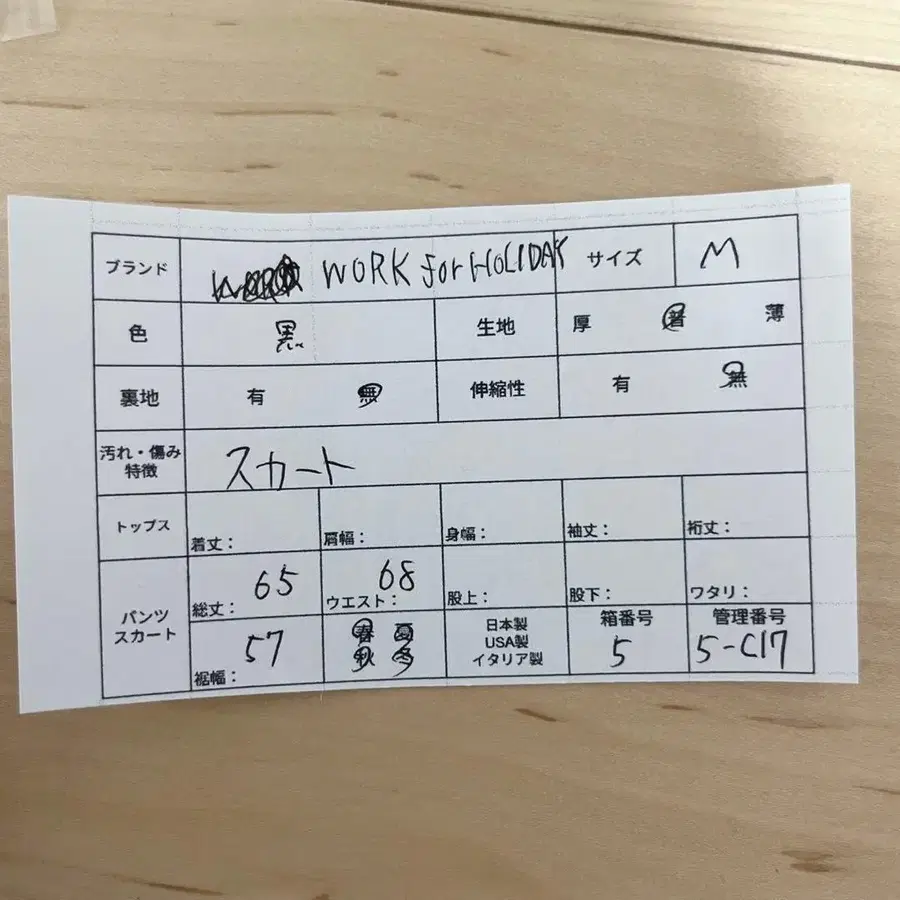 ブランド WORK for HOLIDAY サイズ M
色 黒 生地 厚 普 薄
裏地 有 無 伸縮性 有 無
汚れ・傷み
特徴 スカート
トップス 着丈: 肩幅: 身幅: 袖丈: 裄丈:
パンツ
スカート
総丈: 65 ウエスト: 68 股上: 股下: ワタリ:
裾幅: 57
春 夏
秋 冬
日本製
USA製
イタリア製
箱番号
5
管理番号
5-C17